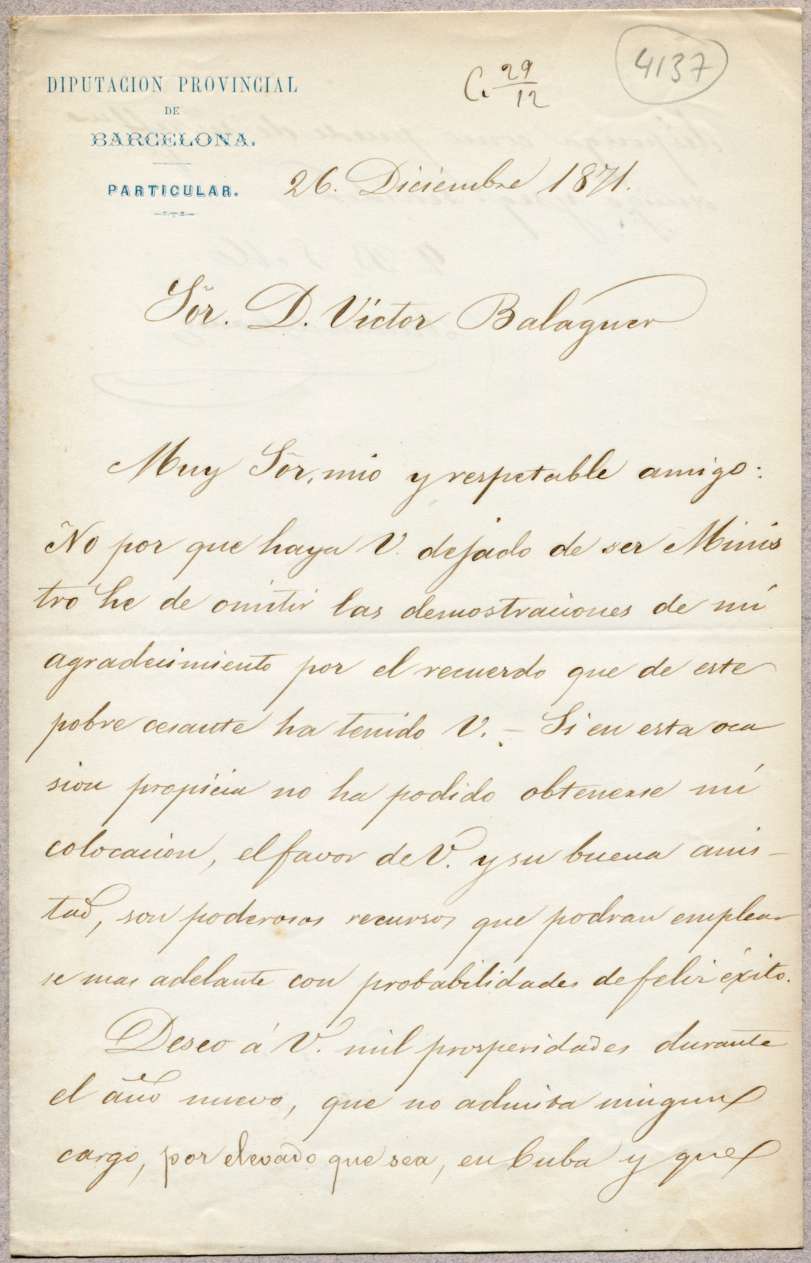 DIPUTACION PROVINCIAL
DE
BARCELONA.
PARTICULAR.
C. 29/12
4137
26. Diciembre 1871.
Sõr. D. Víctor Balaguer
Muy Sõr, mio y respetable amigo:
No por que haya V. dejado de ser Minis
tro he de omitir las demostraciones de mi
agradecimiento por el recuerdo que de este
pobre cesante ha tenido V. – Si en esta oca
sion propicia no ha podido obtenerse mi
colocacion, el favor de V. y su buena amis-
tad, son poderosos recursos que podran emplear
se mas adelante con probabilidades de feliz éxito.
Deseo á V. mil prosperidades durante
el año nuevo, que no admita ningun
cargo, por elevado que sea, en Cuba y que